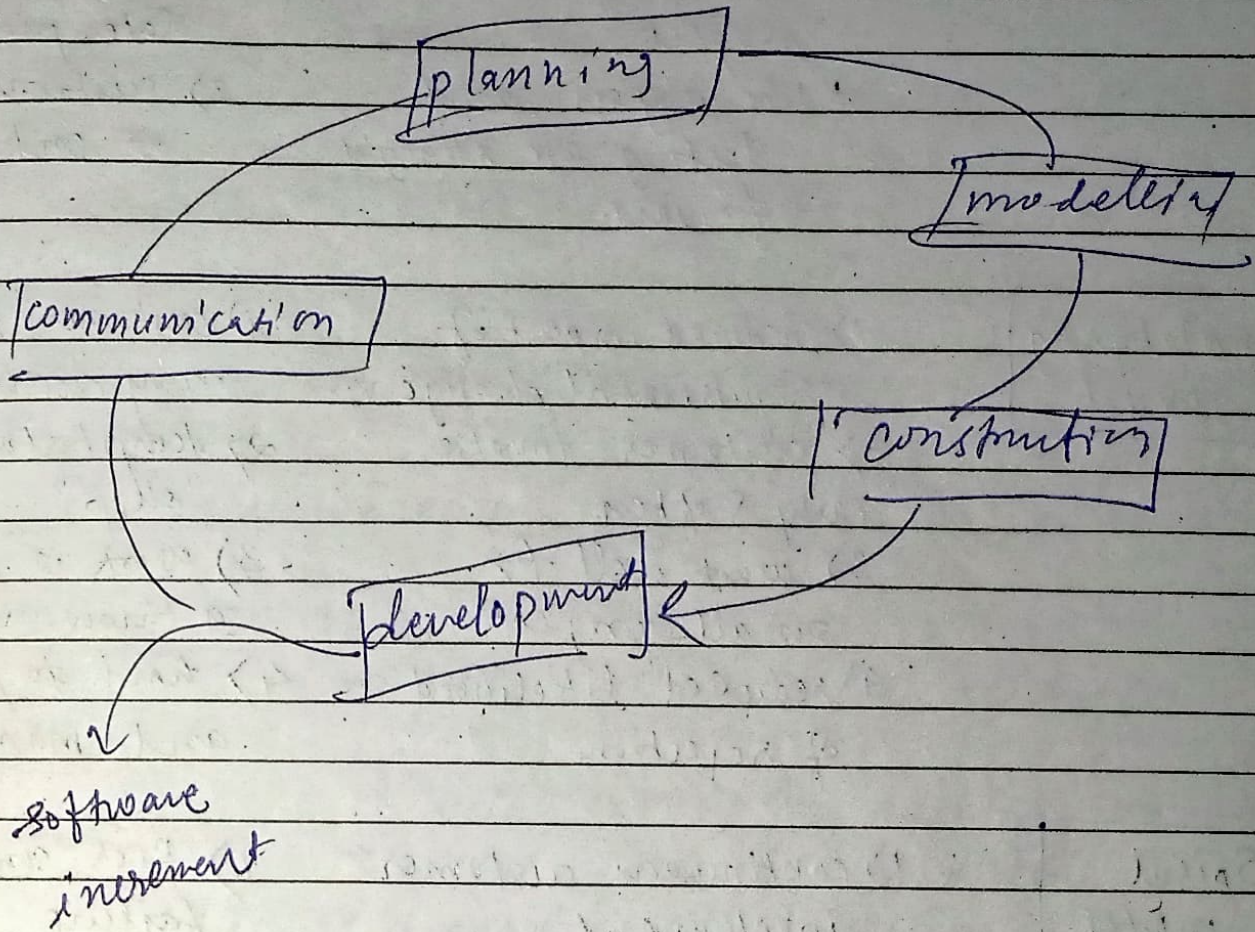 planning
modeling
communication
construction
development
software
increment